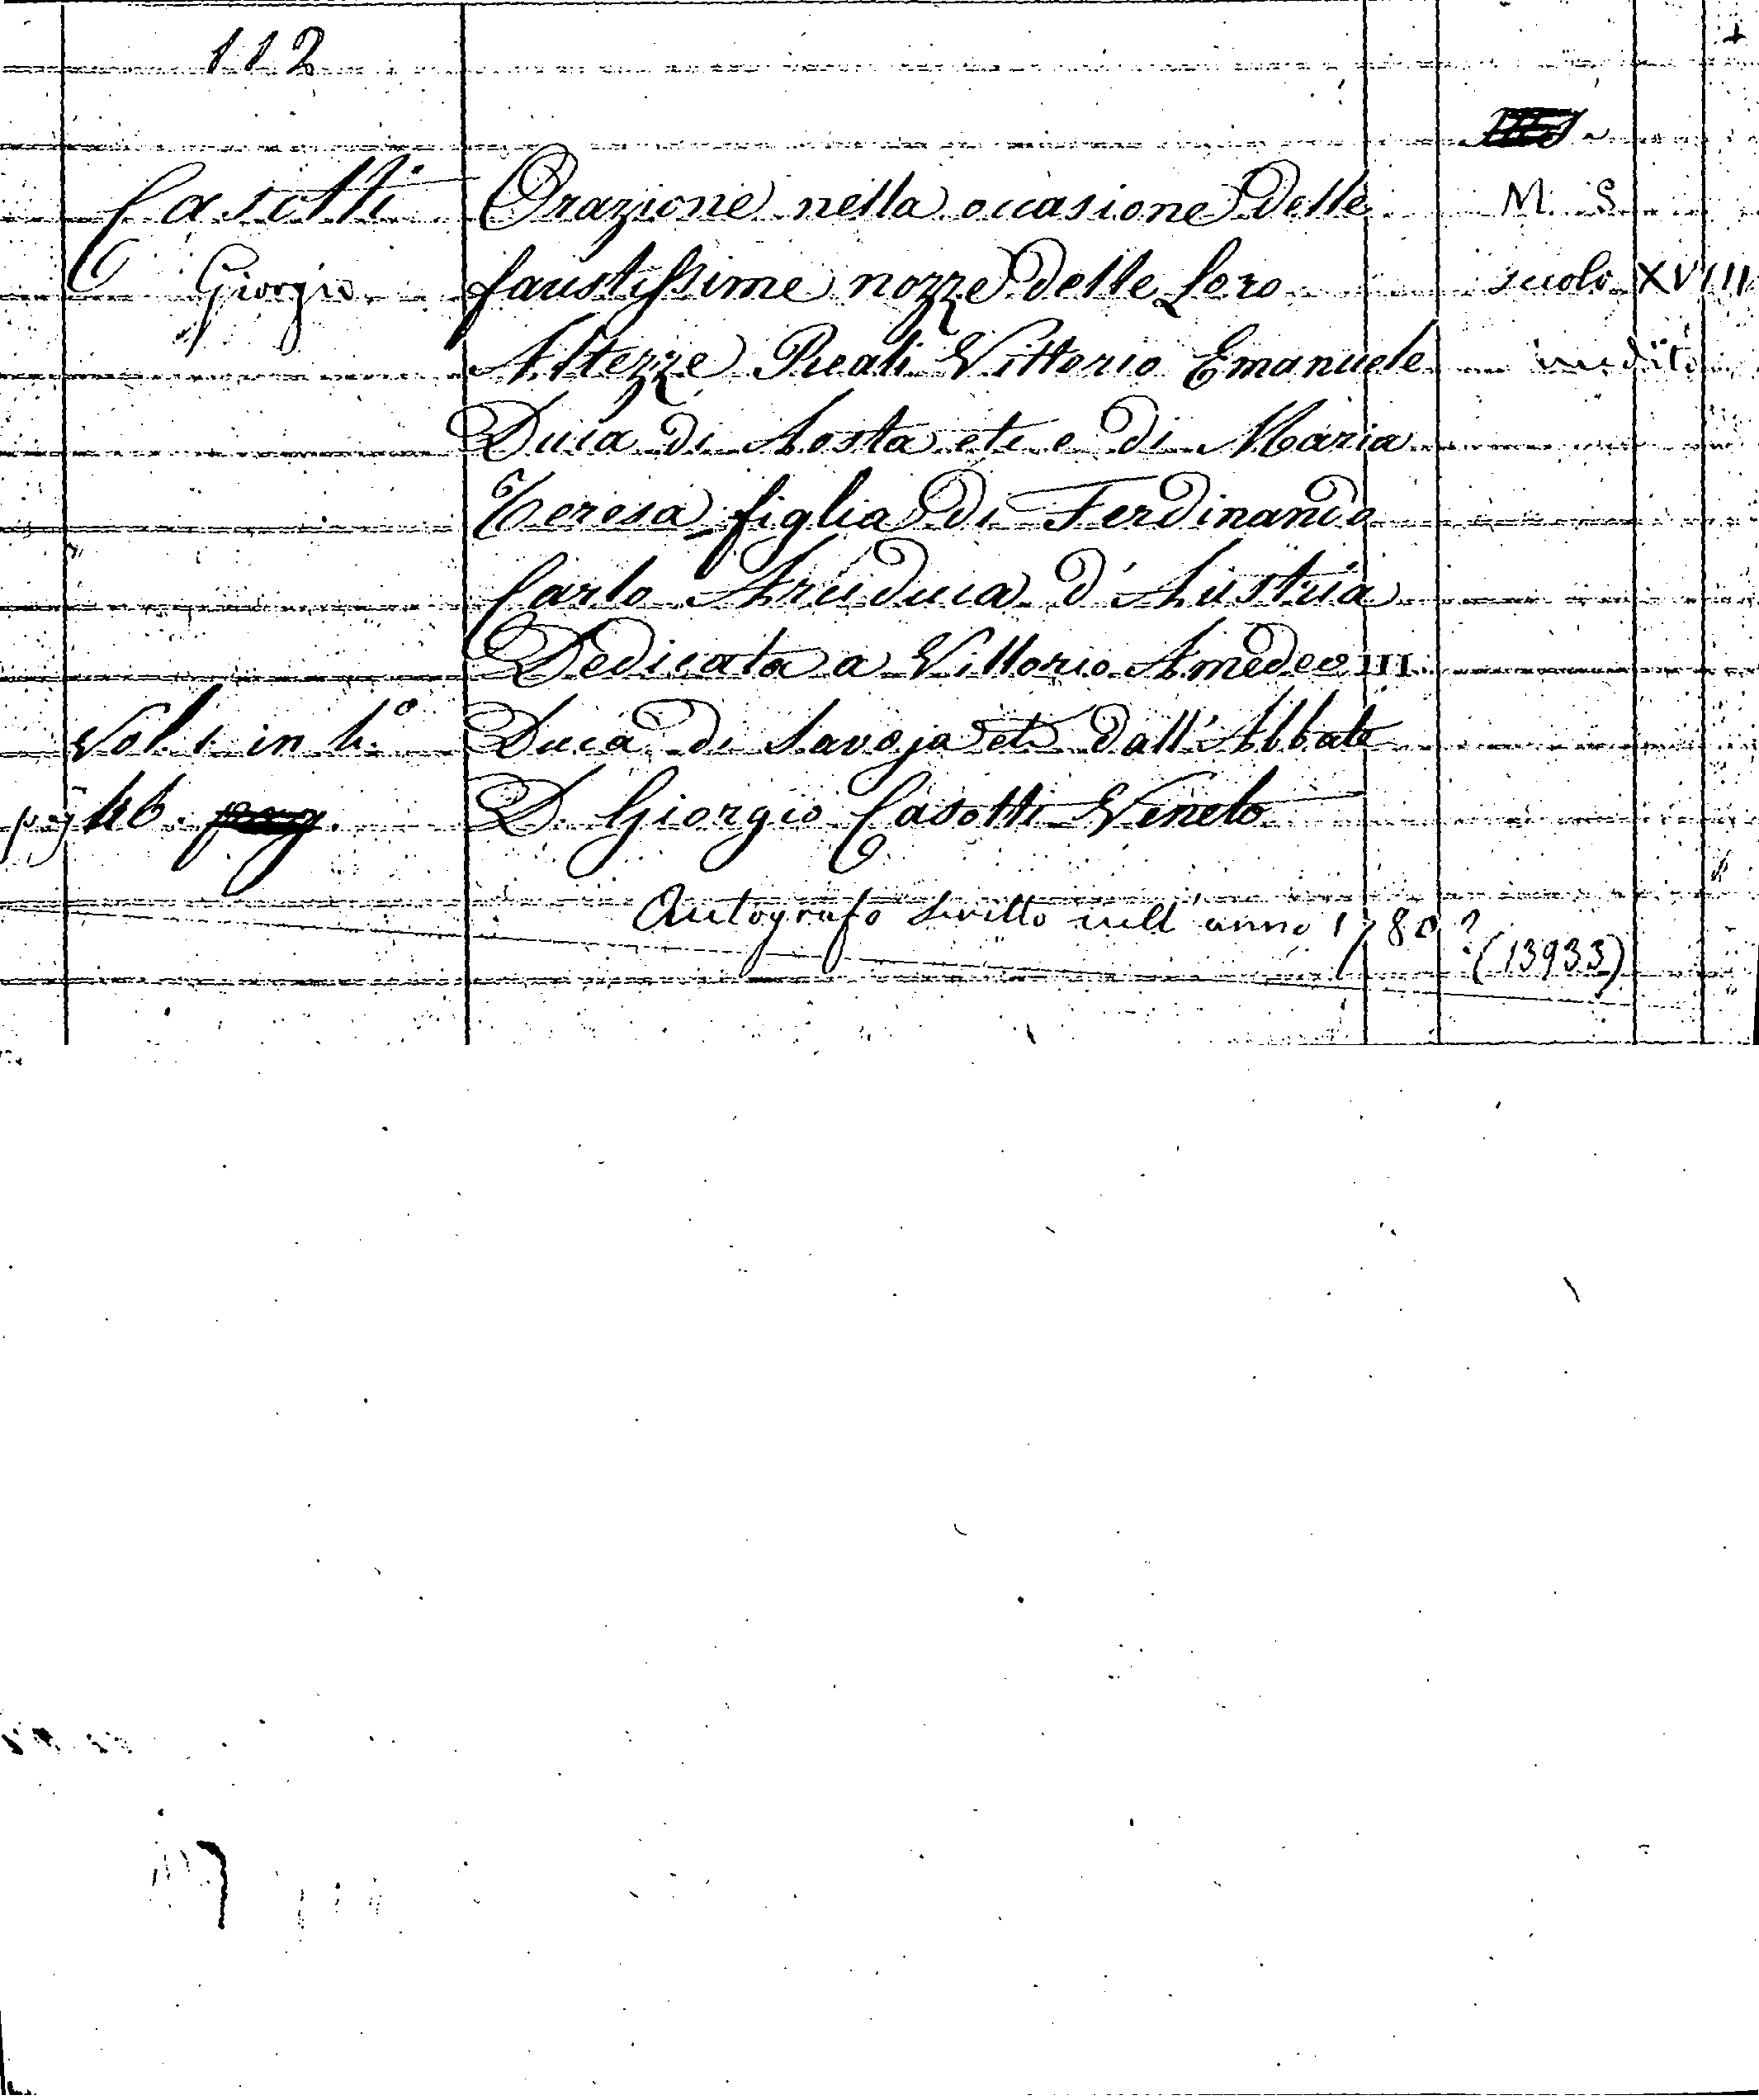 112
Casotti
Giorgio
Vol. 1. in 4.o
pag 46.
Orazione nella occasione delle
faustissime nozze delle Loro
Altezze Reali Vittorio Emanuele
Duca di Aosta etc e di Maria
Teresa figlia di Ferdinando
Carlo Arciduca d'Austria
Dedicata a Vittorio Amedeo III
Duca di Savoja etc dall'Abbate
D. Giorgio Casotti Veneto
Autografo scritto nell'anno 1780?
(13933)
M. S.
secolo XVIII
inedito